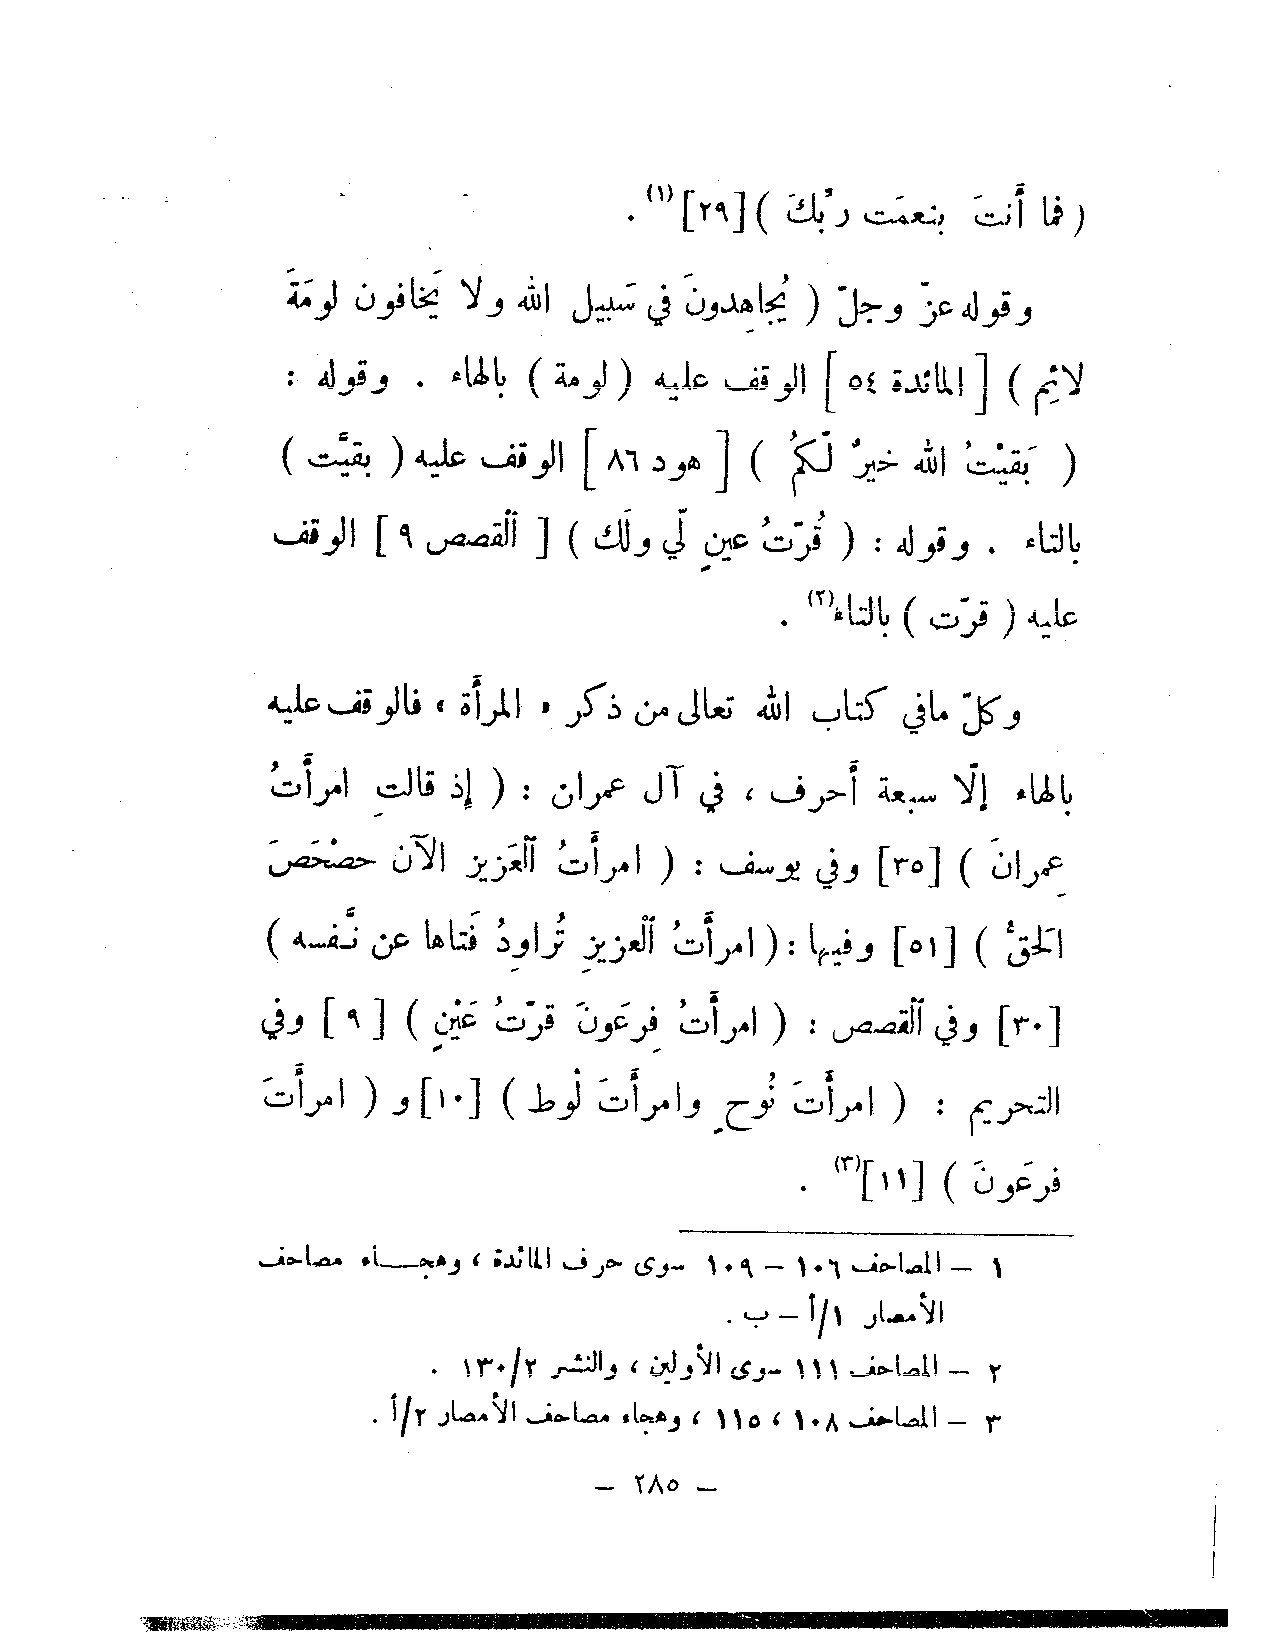 ( فما أَنتَ بنعمَت ربِّكَ )[٢٩](١) .
وقوله عزّ وجلّ ( يُجاهِدونَ في سَبيل الله ولا يَخافون لومَةَ
لائِم ) [ المائدة ٥٤ ] الوقف عليه ( لومة ) بالهاء . وقوله :
( بَقيْتُ الله خيرٌ لّكُم ) [ هود ٨٦ ] الوقف عليه ( بقيَّت )
بالتاء . وقوله : ( قُرّتُ عينٍ لّي ولَك ) [ ٱلقصص ٩ ] الوقف
عليه ( قرّت ) بالتاء(٢) .
وكلّ مافي كتاب الله تعالى من ذكر « المرأة » فالوقف عليه
بالهاء إلّا سبعة أحرف ، في آل عمران : ( إذ قالتِ امرأَتُ
عِمرانَ ) [٣٥] وفي يوسف : ( امرأَتُ ٱلعَزيزِ الآن حصْحَصَ
الحَقُّ ) [٥١] وفيها : ( امرأَتُ ٱلعزيزِ تُراوِدُ فَتاها عن نَّفسه )
[٣٠] وفي ٱلقصص : ( امرأَتُ فِرعَونَ قرّتُ عَيْنٍ ) [ ٩ ] وفي
التحريم : ( امرأَتَ نُوحٍ وامرأَتَ لُوط ) [١٠] و ( امرأَتَ
فرعَونَ ) [١١](٣) .
١ – المصاحف ١٠٦ – ١٠٩ سوى حرف المائدة ، وهجـــاء مصاحف
الأمصار ١/أ – ب .
٢ – المصاحف ١١١ سوى الأولين ، والنشر ١٣٠/٢ .
٣ – المصاحف ١٠٨ ، ١١٥ ، وهجاء مصاحف الأمصار ٢/أ .
– ٢٨٥ –